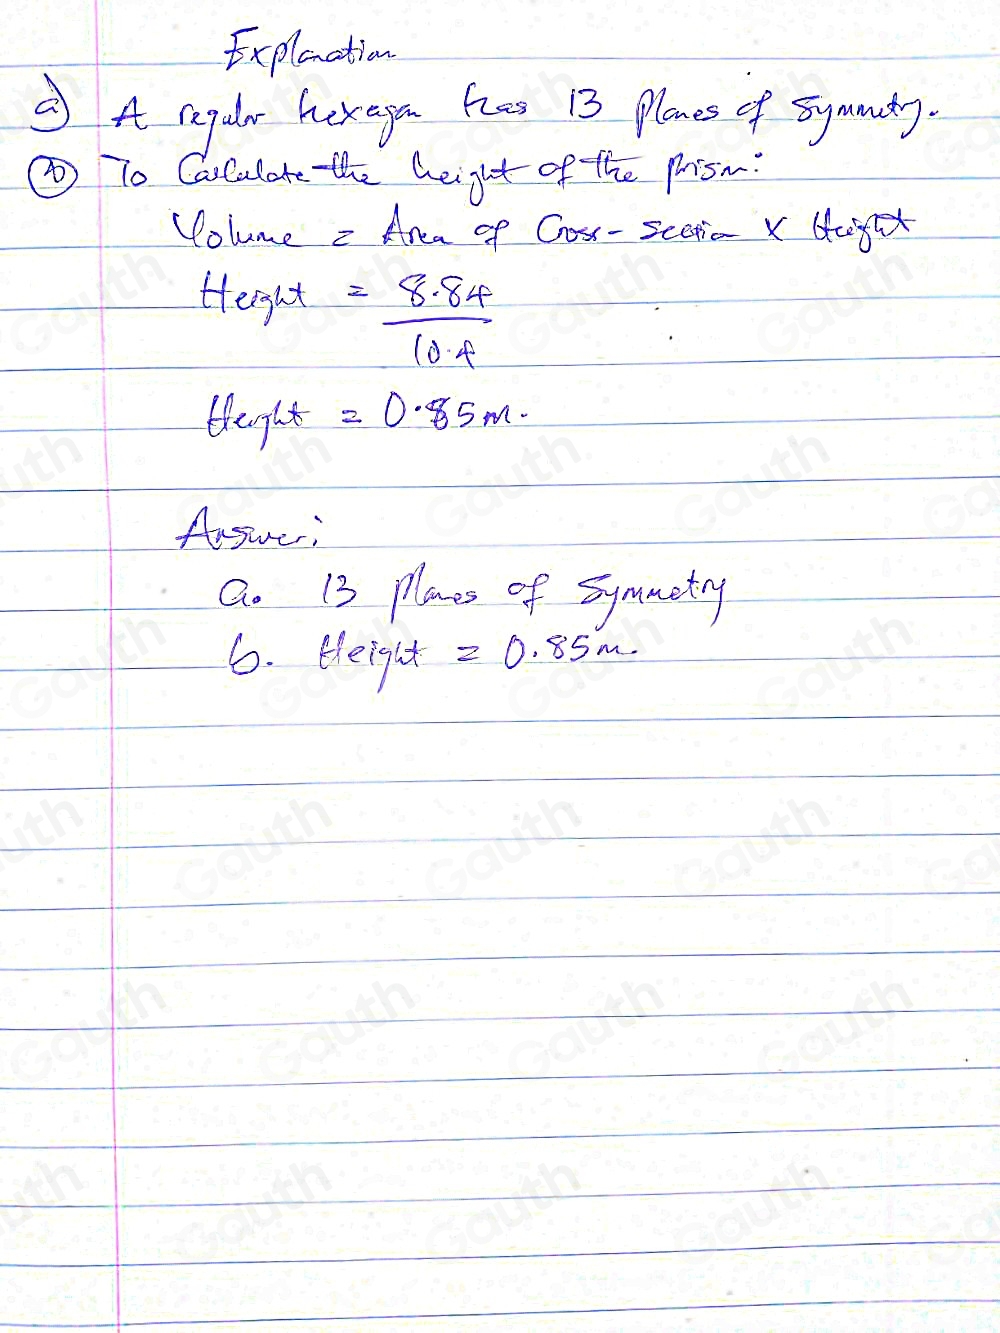 Explanation
a) A regular hexagon has 13 Planes of Symmetry.
b) To Calculate the height of the prism:
Volume = Area of Cross-section x Height
Height = 8.84
10.4
Height = 0.85m.
Answer:
a. 13 planes of Symmetry
b. Height = 0.85m.